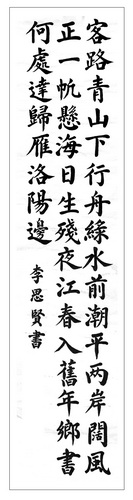 客路青山下行舟綠水前潮平两岸闊風
正一帆懸海日生殘夜江春入舊年鄉書
何處達歸雁洛陽邊
李思賢書